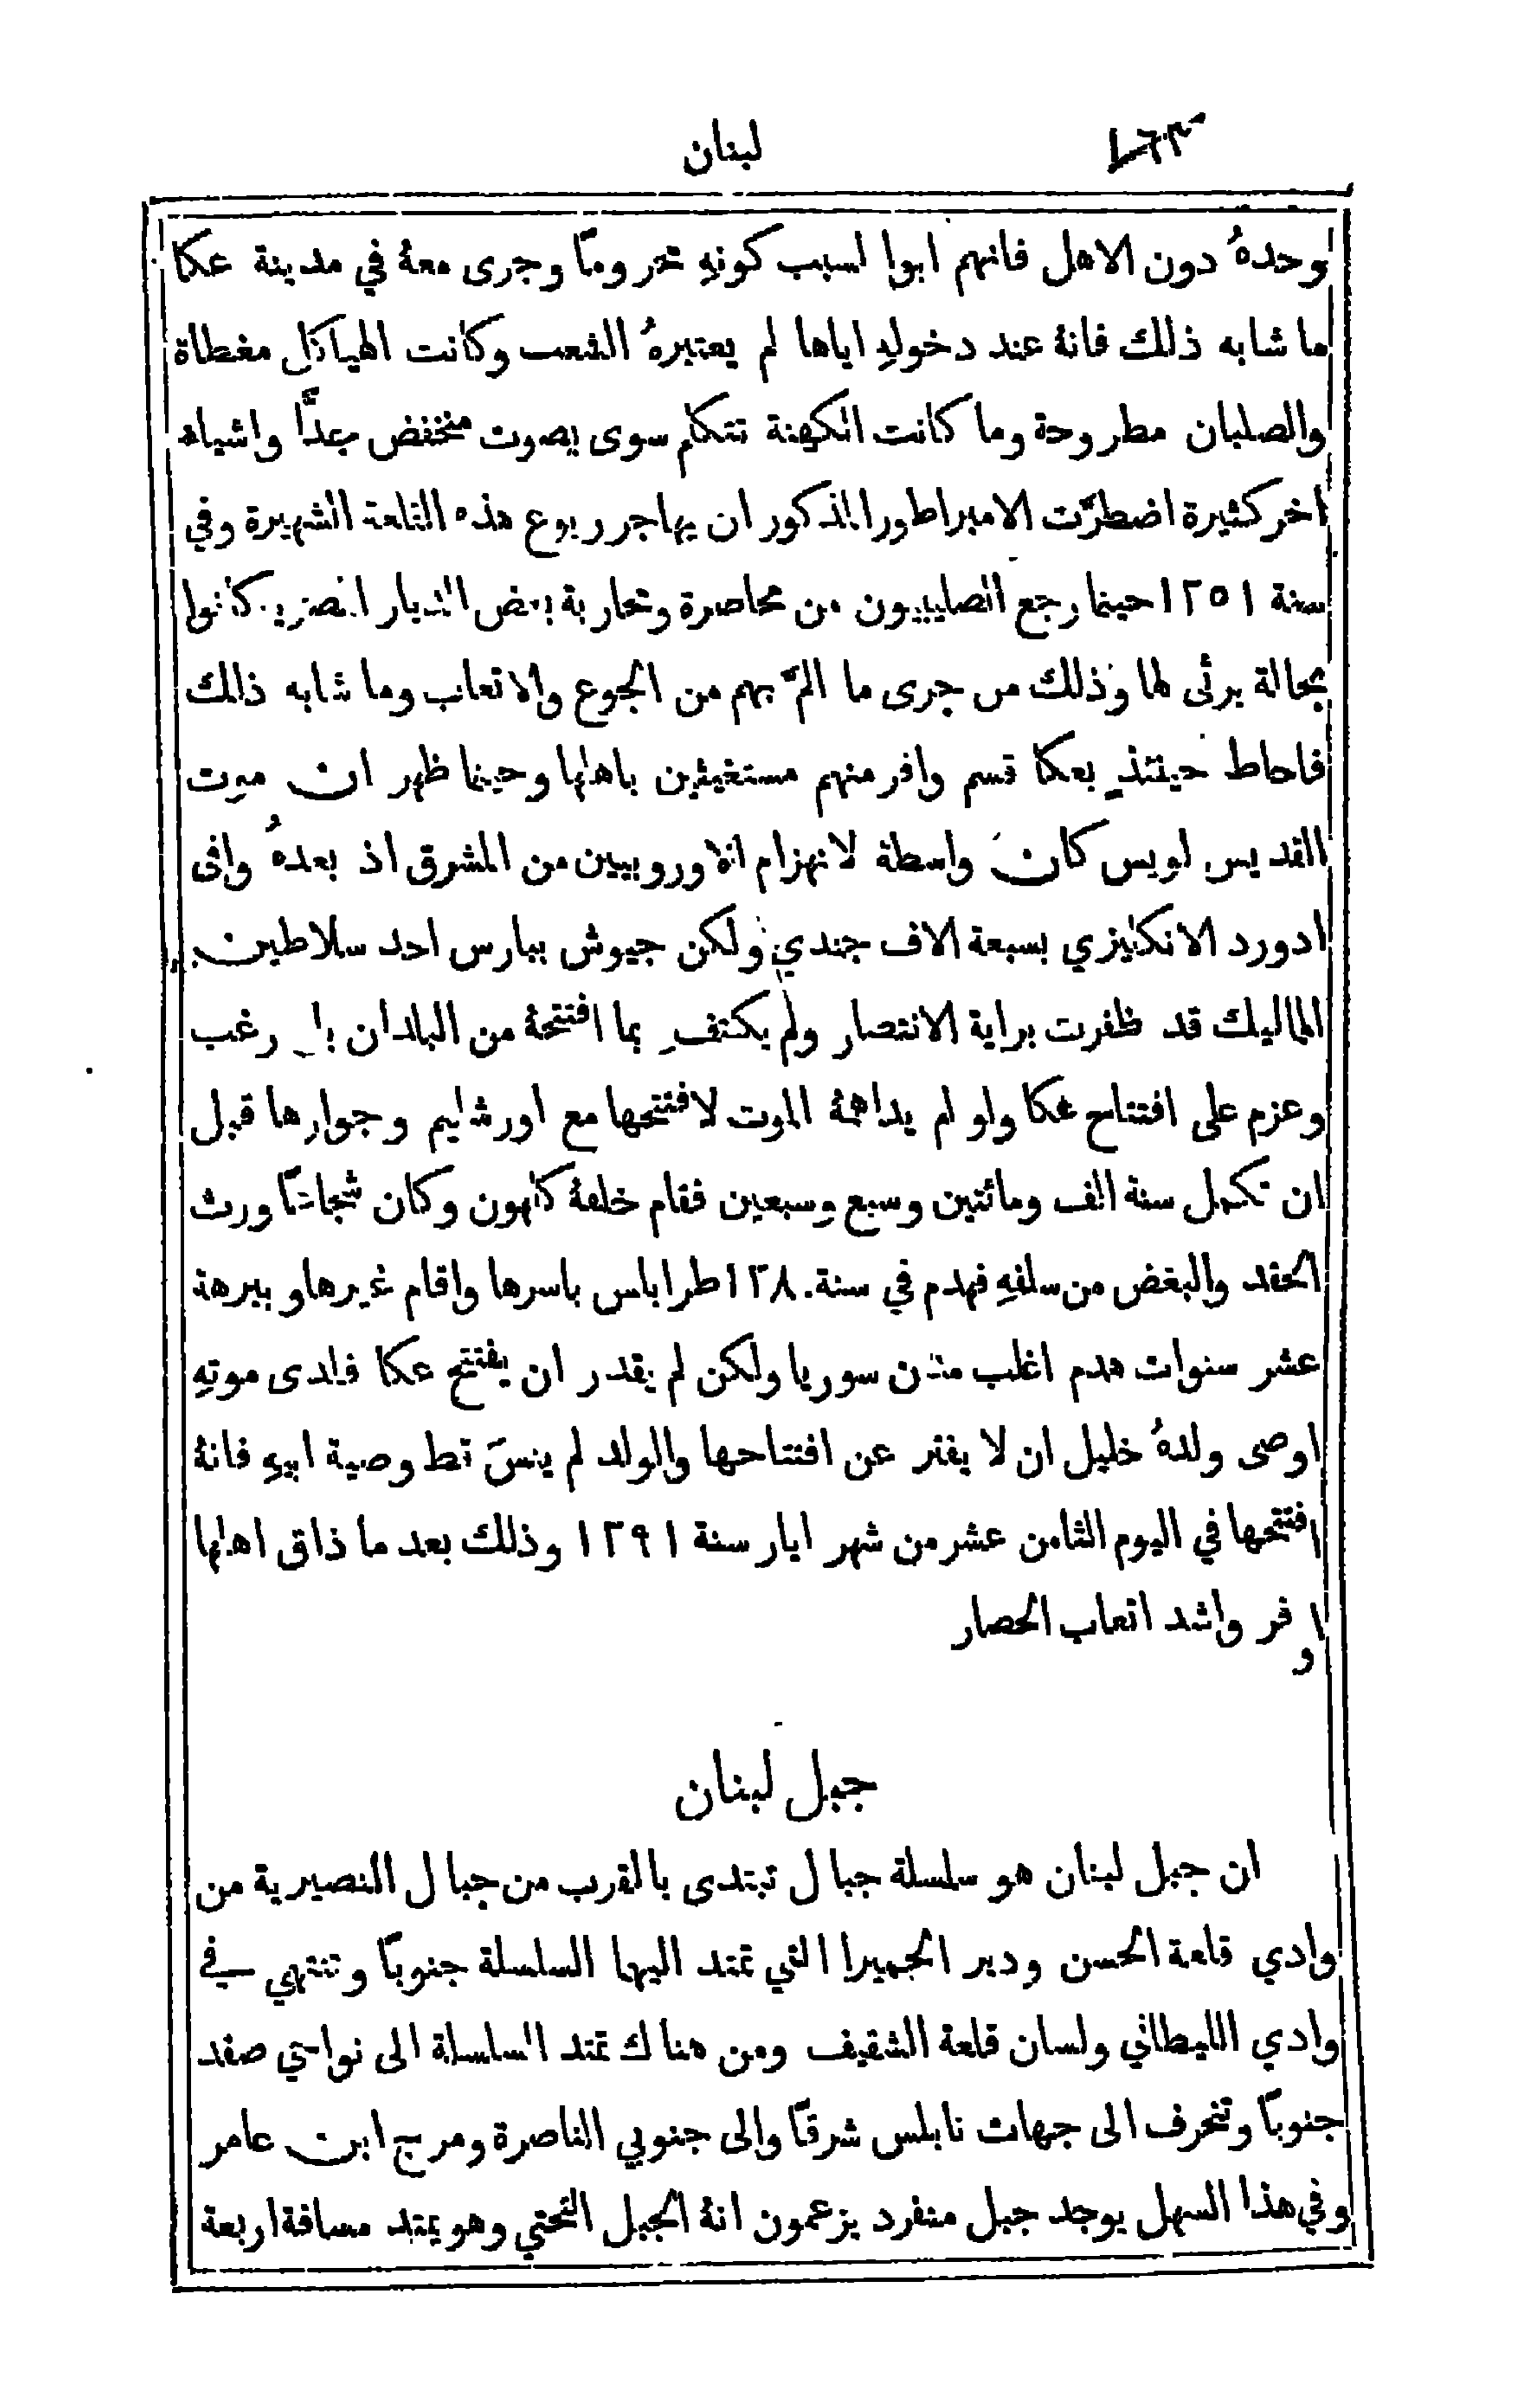 لبنان ١٦٣
وحدهُ دون الاهل فانهم ابوا لسبب كونهِ محرومًا وجرى معهُ في مدينة عكا
ما شابه ذلك فانهُ عند دخولهِ اياها لم يعتبرهُ الشعب وكانت الهياكل مغطاة
والصلبان مطروحة وما كانت الكهنة تتكلم سوى بصوت منخفض جدًّا واشياء
اخر كثيرة اضطرَّت الامبراطور المذكور ان يهاجر ربوع هذه القلعة الشهيرة وفي
سنة ١٢٥١ حينما رجع الصليبيون من محاصرة ومحاربة بعض الديار كانوا
بحالة يرثى لها وذلك من جرى ما المَّ بهم من الجوع والاتعاب وما شابه ذلك
فاحاط حينئذٍ بعكا قسم وافر منهم مستغيثين باهلها وحينما ظهر ان موت
القديس لويس كان واسطة لانهزام الاوروبيين من المشرق اذ بعدهُ وافى
ادورد الانكليزي بسبعة الاف جندي ولكن جيوش بيبارس احد سلاطين
المماليك قد ظفرت براية الانتصار ولم يكتفِ بما افتتحهُ من البلدان بل رغب
وعزم على افتتاح عكا ولو لم يداهمهُ الموت لافتتحها مع اورشليم وجوارها قبل
ان تكمل سنة الف ومائتين وسبع وسبعين فقام خلفهُ كلهون وكان شجاعًا ورث
الحقد والبغض من سلفهِ فهدم في سنة ١٢٨٠ طرابلس باسرها واقام غيرها وببرهة
عشر سنوات هدم اغلب مدن سوريا ولكن لم يقدر ان يفتتح عكا فلدى موتهِ
اوصى ولدهُ خليل ان لا يفتر عن افتتاحها والولد لم ينسَ قط وصية ابيهِ فانهُ
افتتحها في اليوم الثامن عشر من شهر ايار سنة ١٢٩١ وذلك بعد ما ذاق اهلها
اوفر واشد اتعاب الحصار
جبل لبنان
ان جبل لبنان هو سلسلة جبال تبتدى بالقرب من جبال النصيرية من
وادي قلعة الحسن ودير الجميرا التي تمتد اليها السلسلة جنوبًا وتنتهي في
وادي الليطاني ولسان قلعة الشقيف ومن هناك تمتد السلسلة الى نواحي صفد
جنوبًا وتنحرف الى جهات نابلس شرقًا والى جنوبي الناصرة ومرج ابن عامر
وفي هذا السهل يوجد جبل منفرد يزعمون انهُ الجبل التحتي وهو يمتد مسافة اربعة